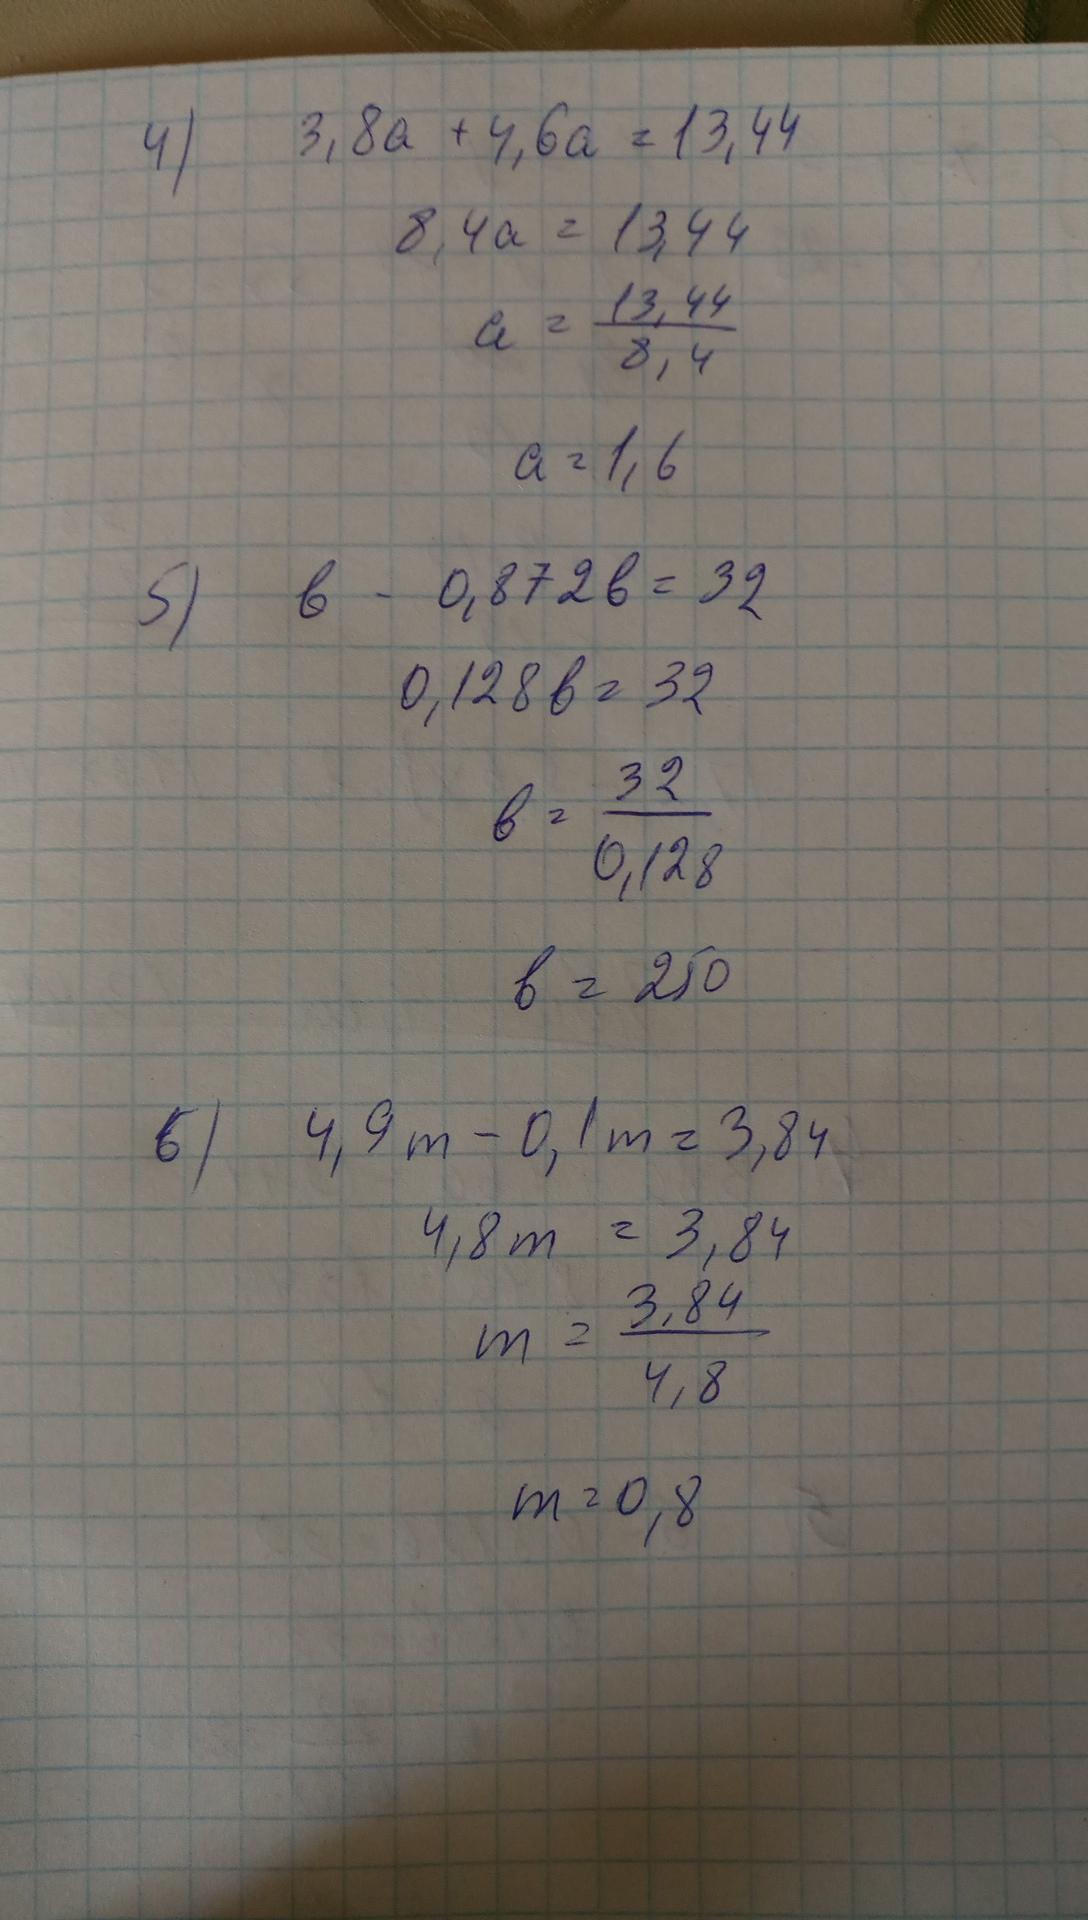 4) 3,8a + 4,6a = 13,44
8,4a = 13,44
a = 13,44 / 8,4
a = 1,6
5) в - 0,872в = 32
0,128в = 32
в = 32 / 0,128
в = 250
6) 4,9m - 0,1m = 3,84
4,8m = 3,84
m = 3,84 / 4,8
m = 0,8